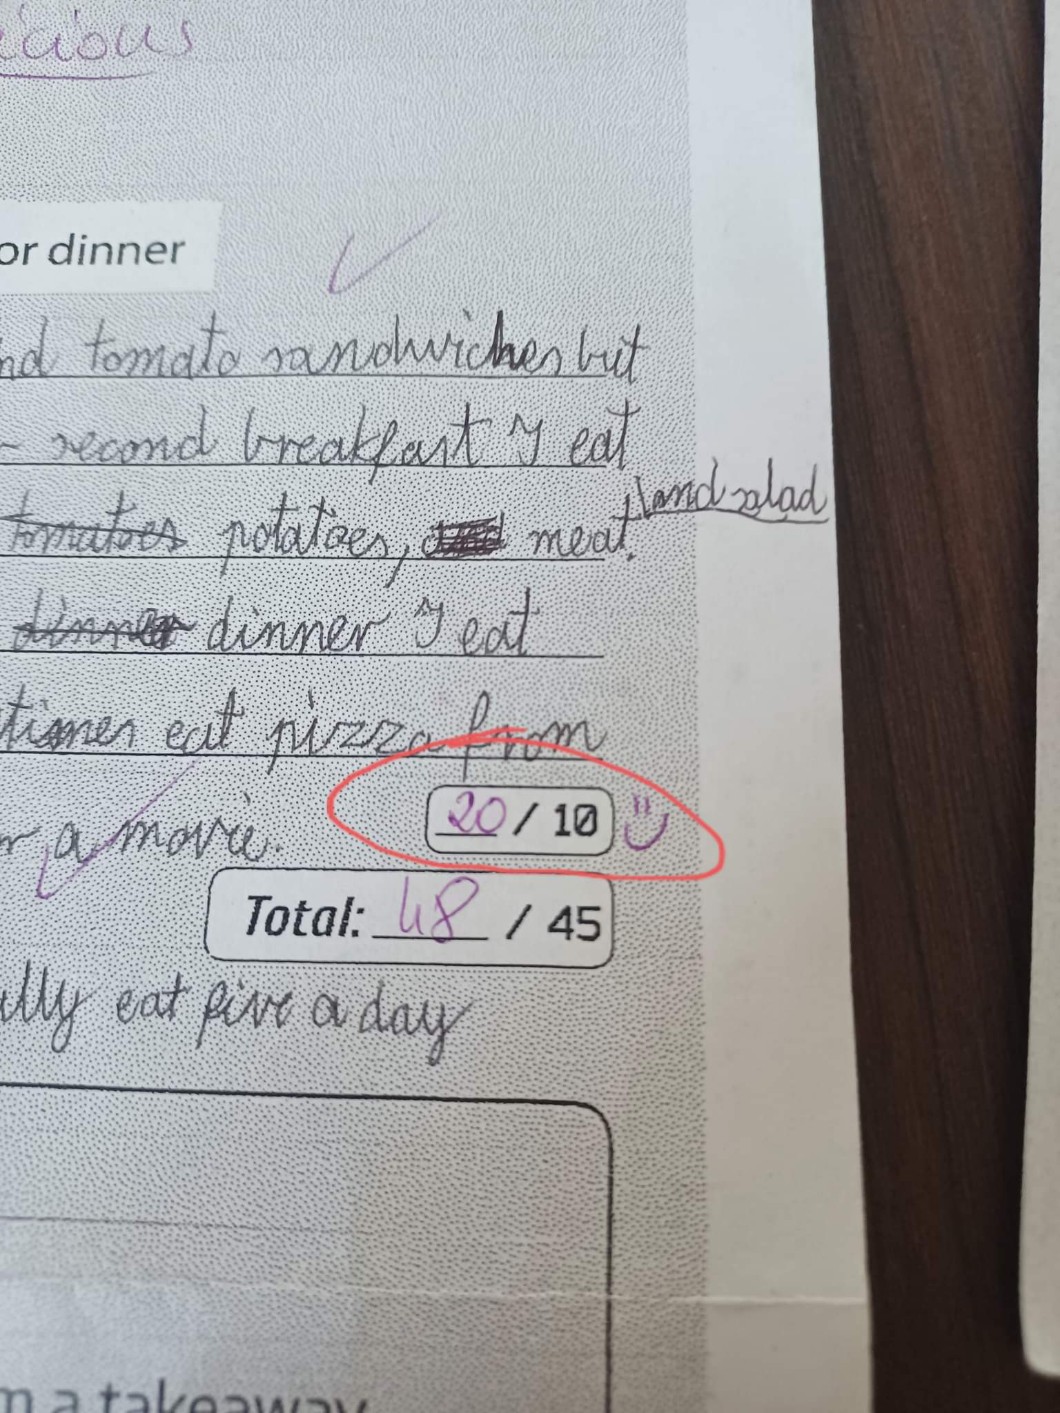 icious
or dinner
nd tomato sandwiches but
second breakfast I eat
and salad
tomatoes potatoes, meat.
dinner dinner I eat
times eat pizza from
20 / 10
r a movie.
Total: 48 / 45
ully eat five a day
m a takeaway